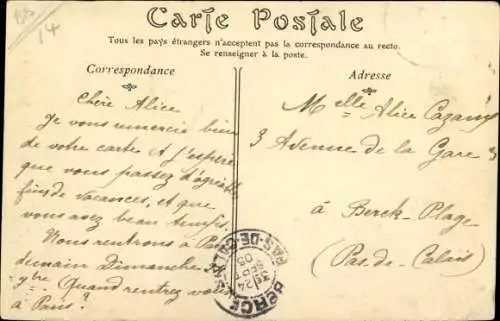 BB
14
Carte Postale
Tous les pays étrangers n'acceptent pas la correspondance au recto.
Se renseigner à la poste.
Correspondance
Adresse
Chère Alice
Je vous remercie bien
de votre carte et j'espère
que vous passez d'agréables
fins de vacances, et que
vous avez beau temps.
Nous rentrons à Paris
demain Dimanche
Quand rentrez vous
à Paris?
Melle Alice
3 Avenue de la Gare 3
à Berck-Plage
(Pas-de-Calais)
BERCK
PAS-DE-CALAIS
24
SEPT
05